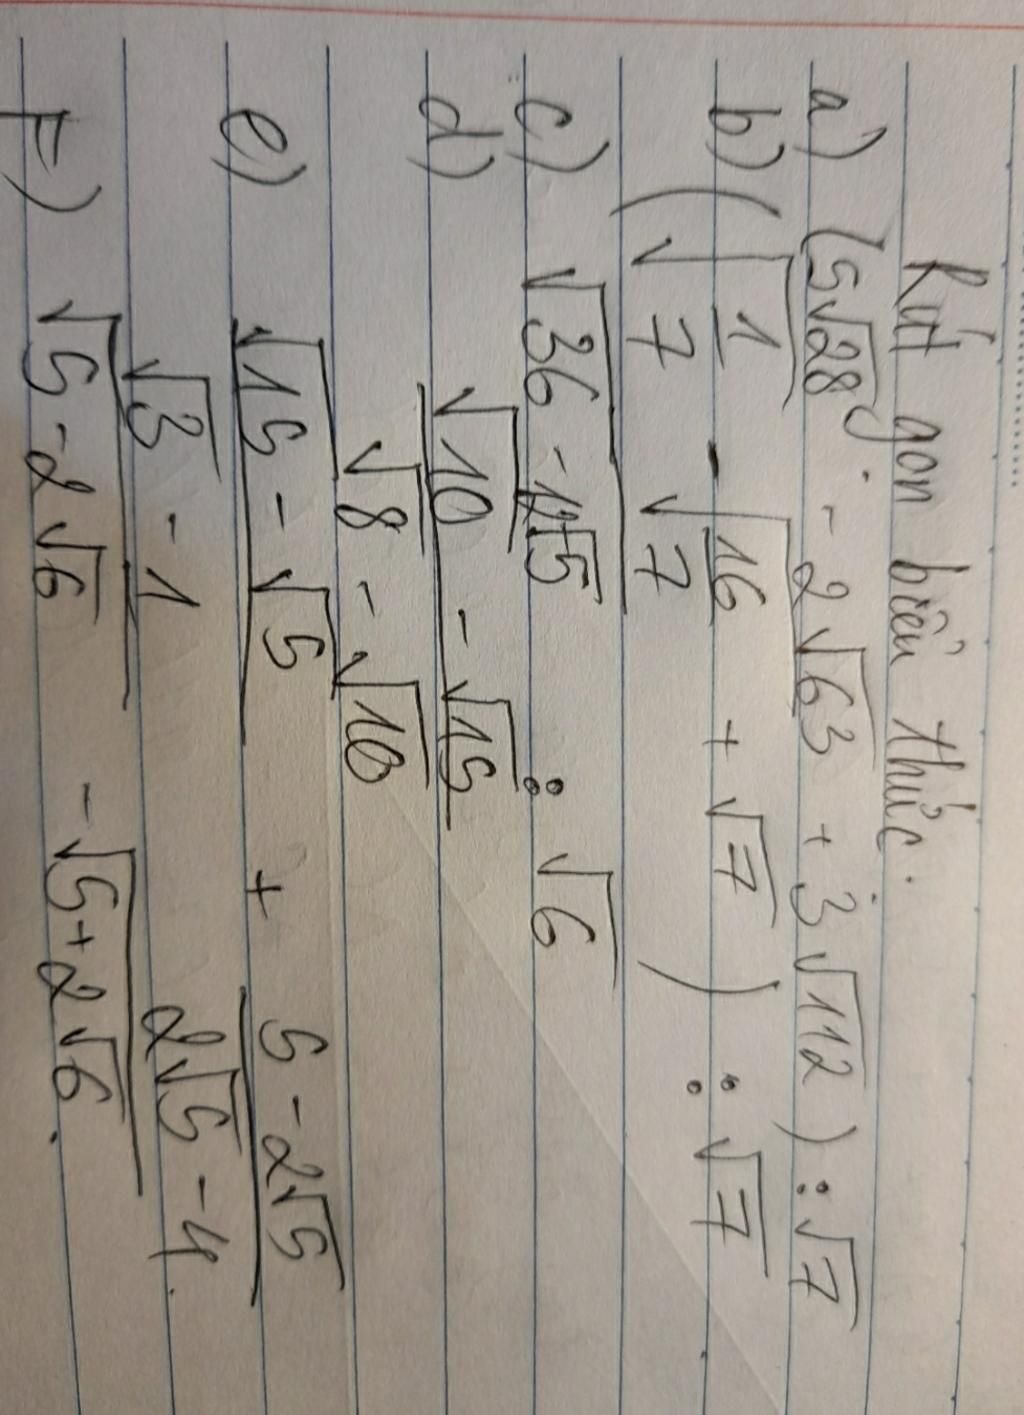 Rút gọn biểu thức.
a) (5√28 - 2√63 + 3√112) : √7
b) (√(1/7) - √(16/7) + √7) : √7
c) √(36 - 12√5) : √6
d) (√10 - √15)/(√8 - √16)
e) (√15 - √5)/(√3 - 1) + (5 - 2√5)/(2√5 - 4)
F) √(5 - 2√6) - √(5 + 2√6).